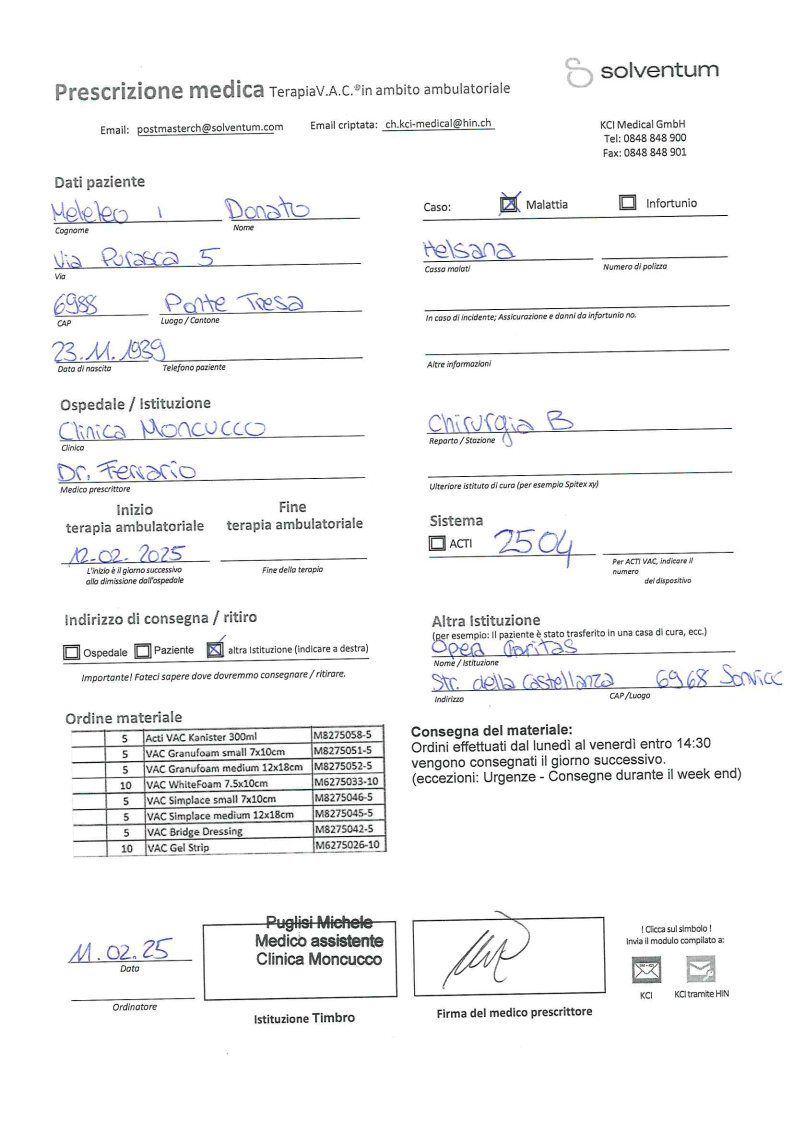 solventum
Prescrizione medica TerapiaV.A.C.®in ambito ambulatoriale
Email: postmasterch@solventum.com Email criptata: ch.kci-medical@hin.ch
KCI Medical GmbH
Tel: 0848 848 900
Fax: 0848 848 901
Dati paziente
Donato
Cognome Nome
Caso: Malattia Infortunio
Via Purasca 5
Via
Helsana
Cassa malati Numero di polizza
6988 Ponte Tresa
CAP Luogo / Cantone
In caso di incidente; Assicurazione e danni da infortunio no.
23.11.1939
Data di nascita Telefono paziente
Altre informazioni
Ospedale / Istituzione
Clinica Moncucco
Clinica
Chirurgia B
Reparto / Stazione
Dr. Ferrario
Medico prescrittore
Ulteriore istituto di cura (per esempio Spitex xy)
Inizio
terapia ambulatoriale
Fine
terapia ambulatoriale
12.02.2025
L'inizio è il giorno successivo
alla dimissione dall'ospedale
Fine della terapia
Sistema
ACTI 2504
Per ACTI VAC, indicare il
numero
del dispositivo
Indirizzo di consegna / ritiro
Ospedale Paziente altra Istituzione (indicare a destra)
Importante! Fateci sapere dove dovremmo consegnare / ritirare.
Altra Istituzione
(per esempio: Il paziente è stato trasferito in una casa di cura, ecc.)
Opera Caritas
Nome / Istituzione
Str. della Castellanza 6968
Indirizzo CAP /Luogo
Ordine materiale
5 Acti VAC Kanister 300ml M8275058-5
5 VAC Granufoam small 7x10cm M8275051-5
5 VAC Granufoam medium 12x18cm M8275052-5
10 VAC WhiteFoam 7.5x10cm M6275033-10
5 VAC Simplace small 7x10cm M8275046-5
5 VAC Simplace medium 12x18cm M8275045-5
5 VAC Bridge Dressing M8275042-5
10 VAC Gel Strip M6275026-10
Consegna del materiale:
Ordini effettuati dal lunedì al venerdì entro 14:30
vengono consegnati il giorno successivo.
(eccezioni: Urgenze - Consegne durante il week end)
11.02.25
Data
Ordinatore
Puglisi Michele
Medico assistente
Clinica Moncucco
Istituzione Timbro
Firma del medico prescrittore
! Clicca sul simbolo !
Invia il modulo compilato a:
KCI KCI tramite HIN